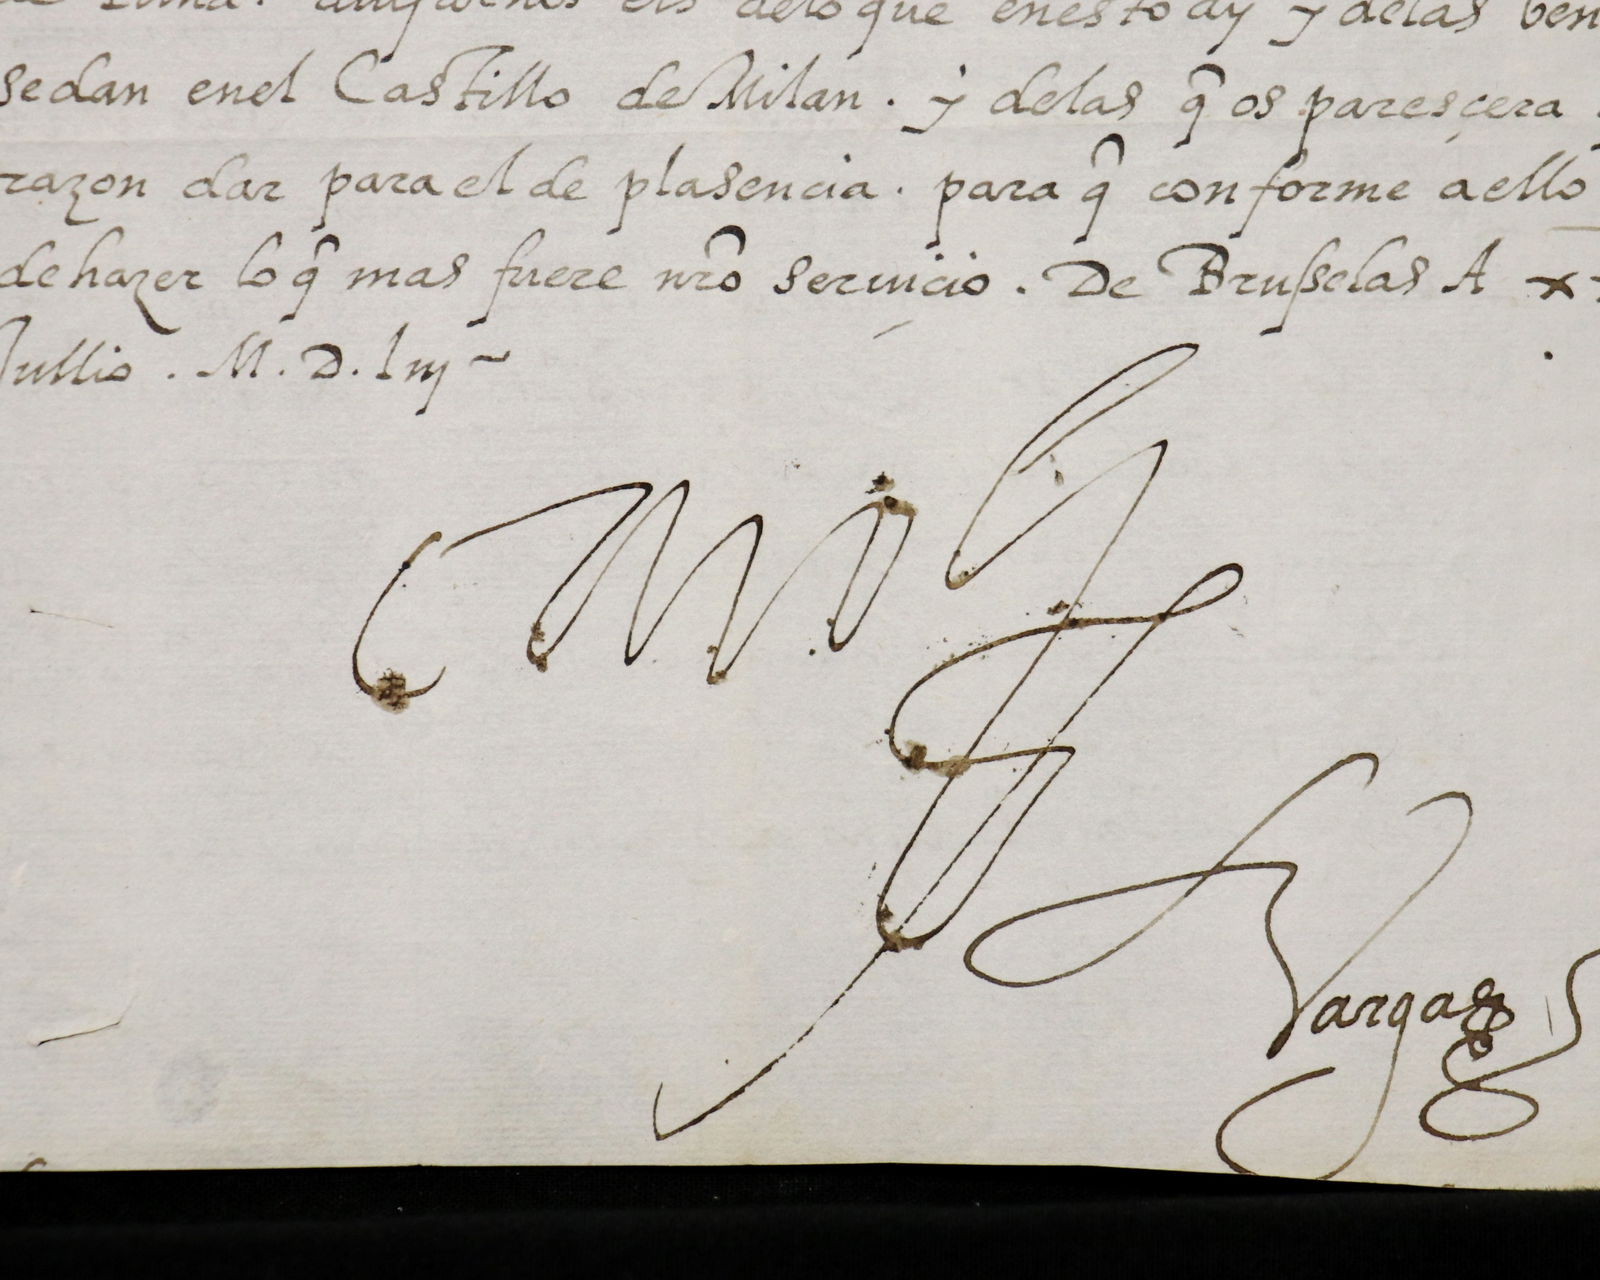 de Luna. dello que en esto ay y delas
se dan enel Castillo de Milan. y delas q̃ os paresçera
razon dar para el de plasencia. para q̃ conforme a ello
de hazer lo q̃ mas fuere nr̃o seruicio. De Brusselas A
Jullio. M.D.liiij
Vargas